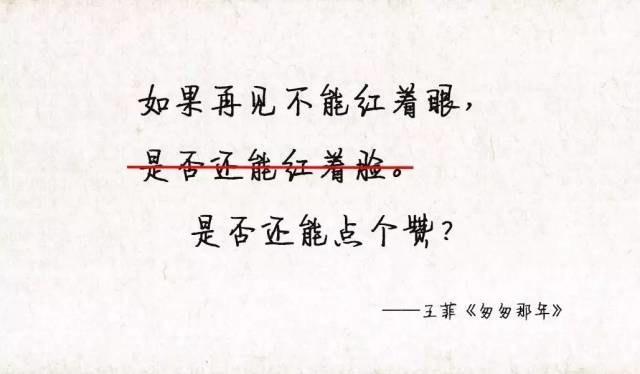 如果再见不能红着眼，
是否还能红着脸。
是否还能点个赞？
——王菲《匆匆那年》